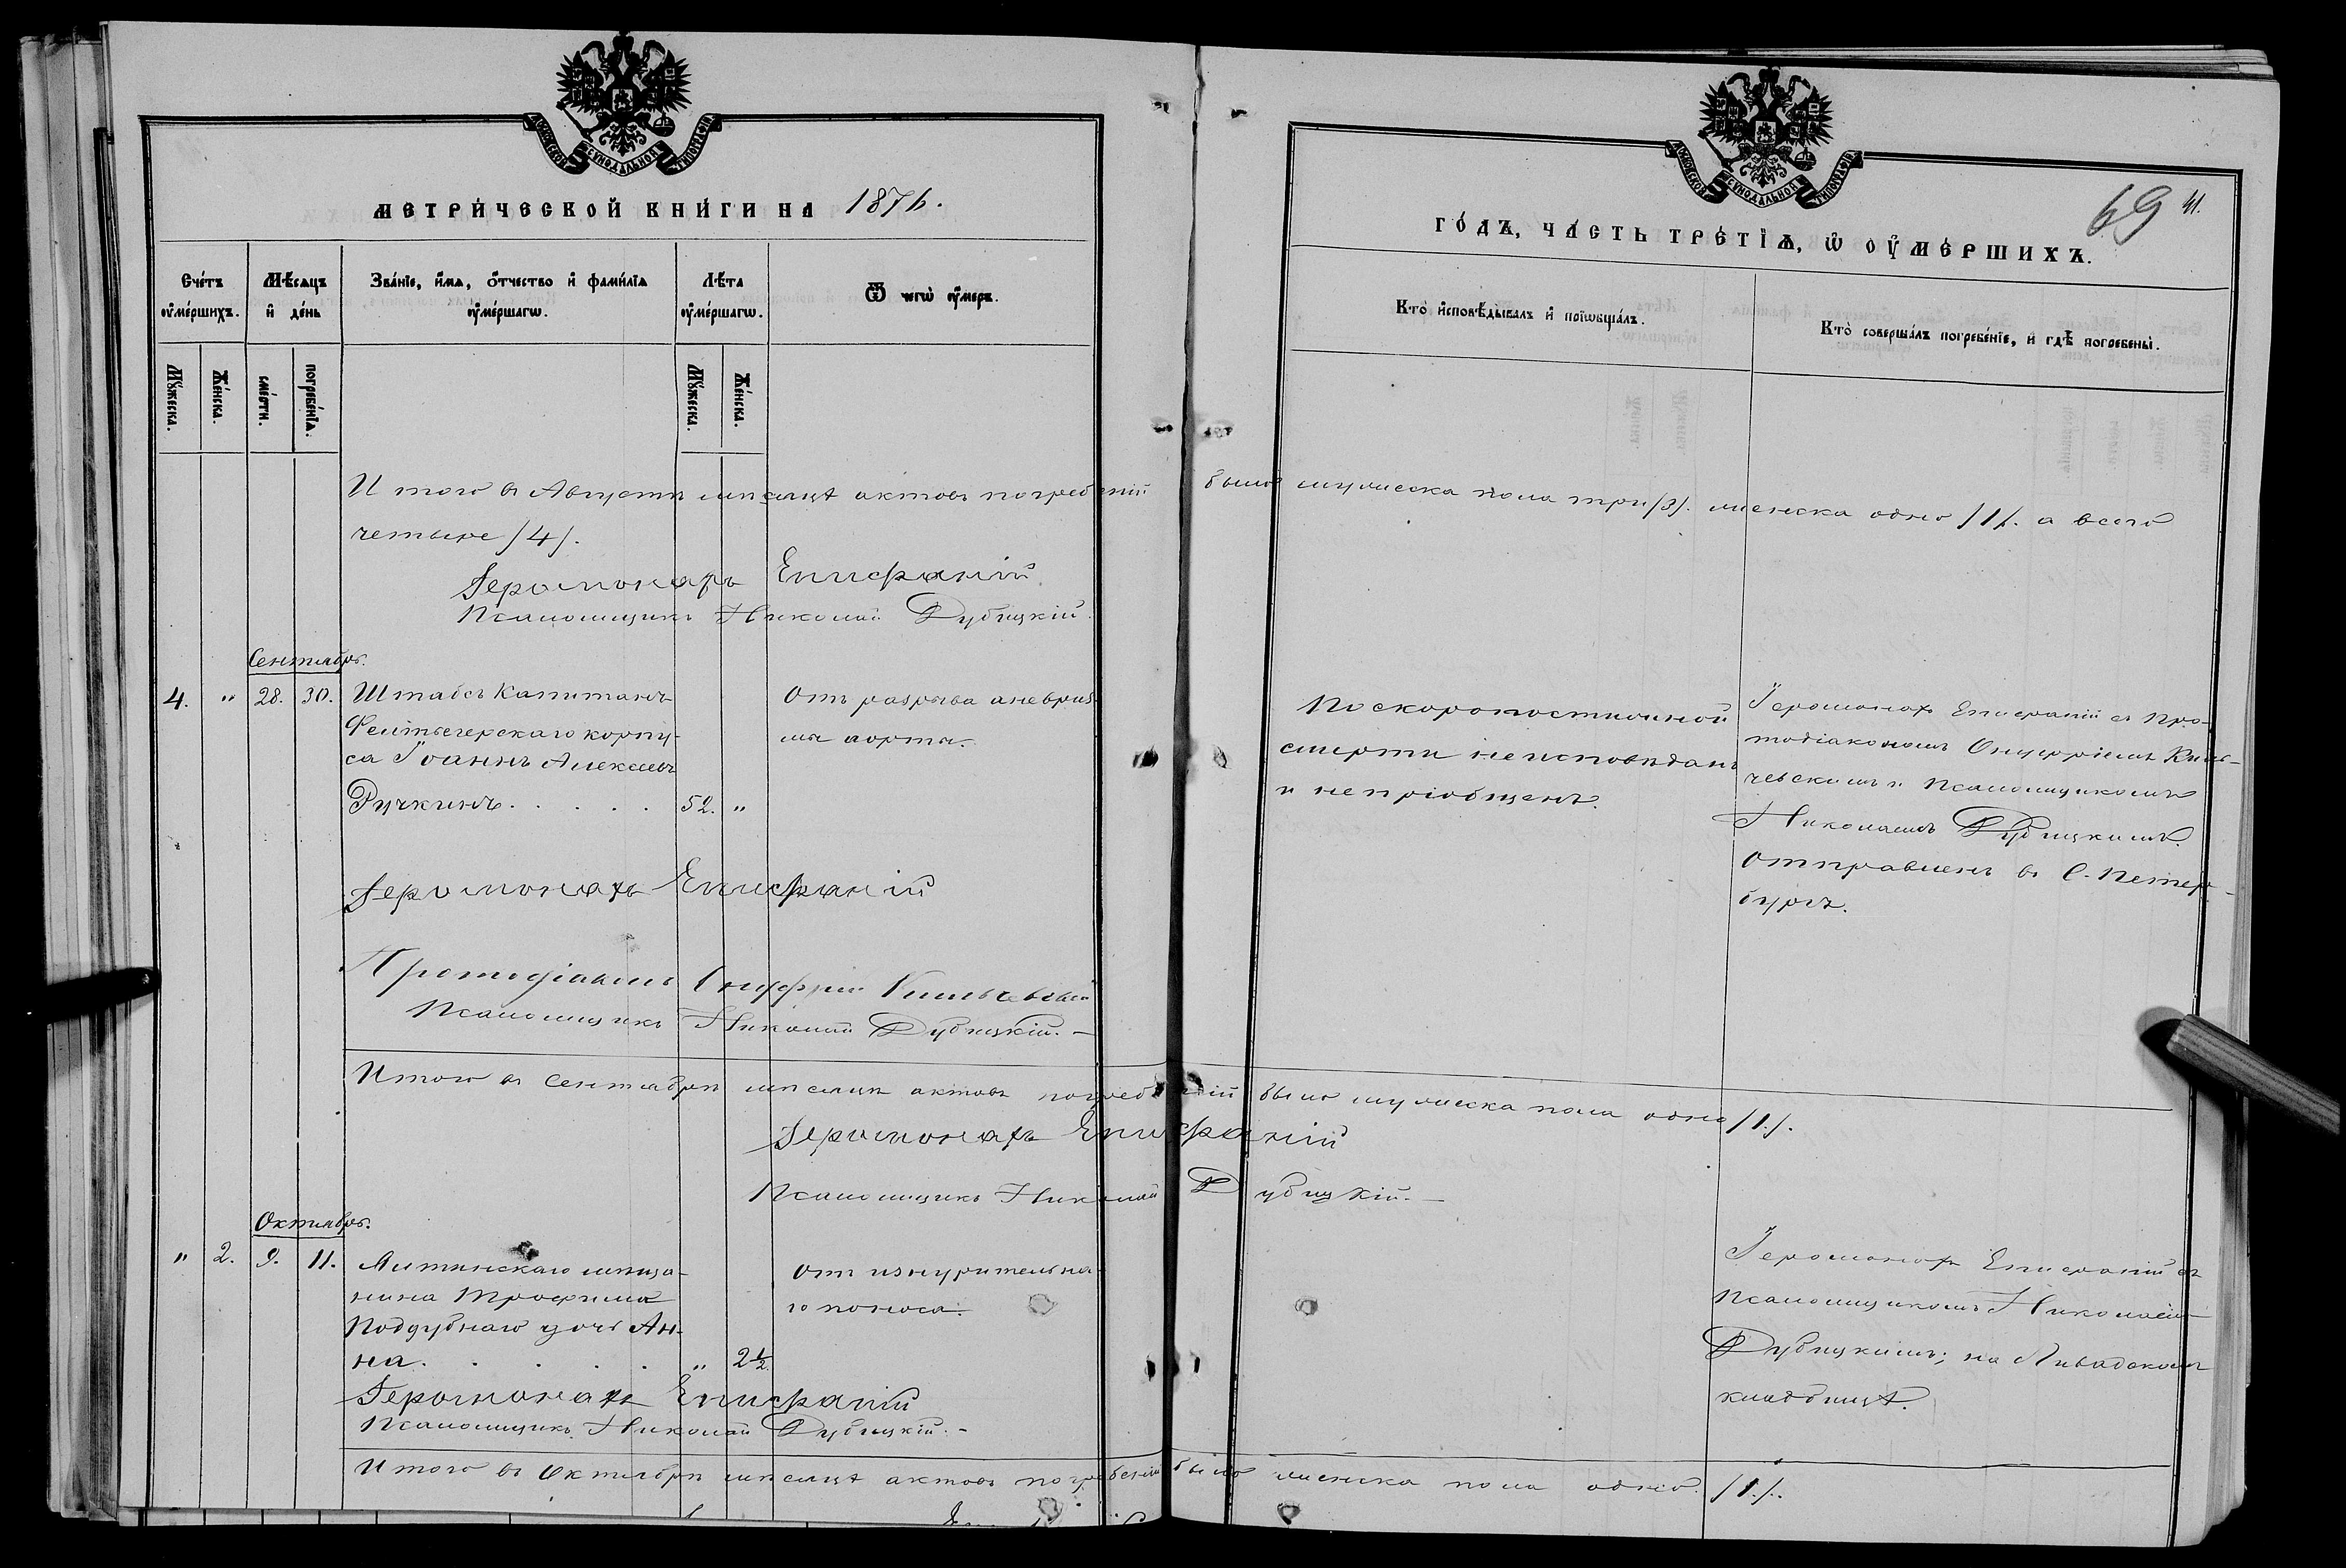 МОСКОВСКОЙ СѴНОДАЛЬНОЙ ТИПОГРАФІИ
МЕТРИ́ЧЕСКОЙ КНИ́ГИ НА 1876.
Сче́тъ ᲂу҆ме́ршихъ.
Мѣ́сяцъ и҆ де́нь
Зва́нїе, и҆́мѧ, ѻ҆́тчество и҆ фами́лїѧ ᲂу҆ме́ршагѡ.
Лѣ́та ᲂу҆ме́ршагѡ.
Ѿ чегѡ̀ ᲂу҆́меръ.
Мꙋ́жеска.
Же́нска.
сме́рти.
погребе́нїѧ.
Мꙋ́жеска.
Же́нска.
МОСКОВСКОЙ СѴНОДАЛЬНОЙ ТИПОГРАФІИ
69 41.
ГО́ДЪ, ЧА́СТЬ ТРЕ́ТЇѦ, Ѡ҆ ОУ҆МЕ́РШИХЪ.
Кто̀ и҆сповѣ́дывалъ и҆ прїѡбща́лъ.
Кто̀ соверша́лъ погребе́нїе, и҆ гдѣ̀ погребены̀.
Итого въ Августѣ мѣсяцѣ актовъ погребеній было мужеска пола три /3/. женска одно /1/. а всего
четыре /4/.
Іеромонахъ Епифаній.
Псаломщикъ Николай Дубицкій.
Сентябрь.
4. " 28. 30.
Штабсъ Капитанъ
Фельдъегерскаго корпу-
са Іоаннъ Алексѣевъ
Ручкинъ. . . . . 52. "
Отъ разрыва аневриз-
мы аорты.
По скоропостижной
смерти неисповѣданъ
и непріобщенъ.
Іеромонахъ Епифаній съ про-
тодіакономъ Онуфріемъ Киль-
чевскимъ и Псаломщикомъ
Николаемъ Дубицкимъ.
отправленъ въ С.-Петер-
бургъ.
Іеромонахъ Епифаній
Протодіаконъ Онуфрій Кильчевскій
Псаломщикъ Николай Дубицкій.-
Итого въ Сентябрѣ мѣсяцѣ актовъ погребеній было мужеска пола одно /1./.
Іеромонахъ Епифаній
Псаломщикъ Николай Дубицкій.-
Октябрь.
" 2. 9. 11.
нина Трофима
Поддубнаго дочь Ан-
на. . . . . " 2½
отъ изнурительна-
го поноса.
Іеромонахъ Епифаній съ
Псаломщикомъ Николаемъ
Дубицкимъ; на Ливадскомъ
кладбищѣ.
Іеромонахъ Епифаній
Псаломщикъ Николай Дубицкій.-
Итого въ Октябрѣ мѣсяцѣ актовъ погребеній было женска пола одно. /1./.